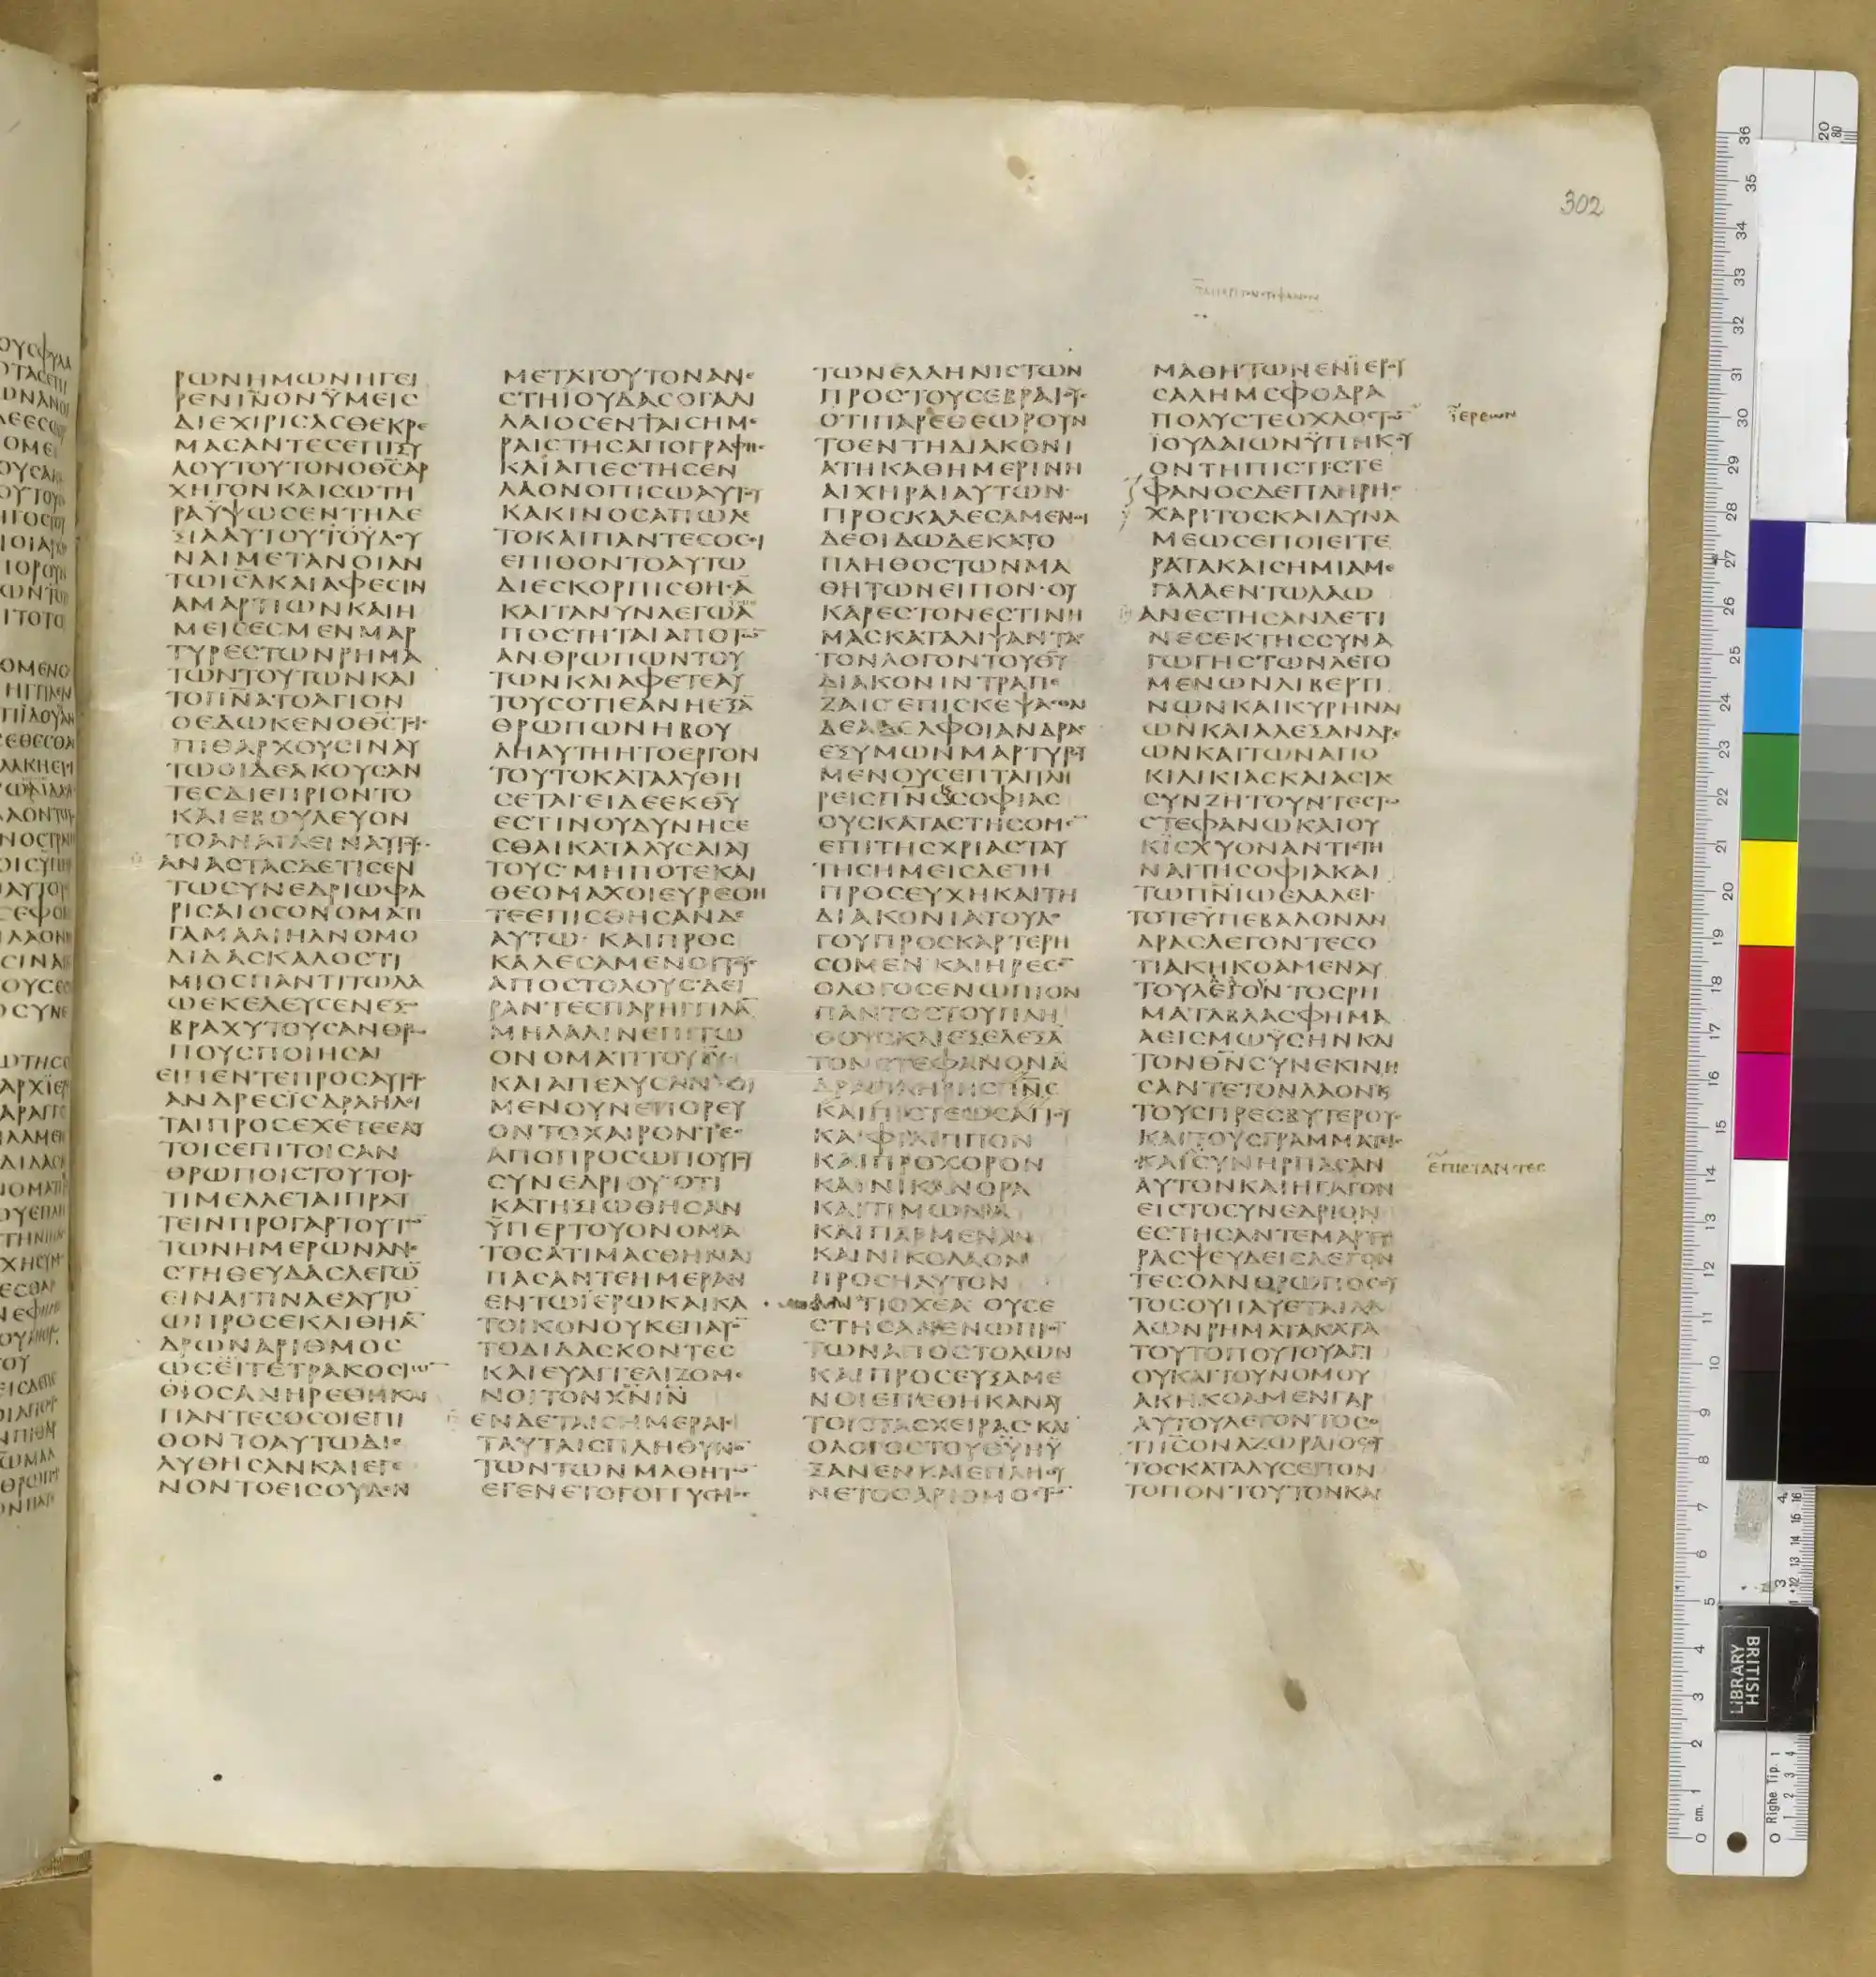 302
ΡΩΝΗΜΩΝΗΓΕΙ
ΡΕΝΙΝΟΝΫΜΕΙϹ
ΔΙΕΧΙΡΙϹΑϹΘΕΚΡΕ
ΜΑϹΑΝΤΕϹΕΠΙΞΥ
ΛΟΥΤΟΥΤΟΝΟΘϹΑΡ
ΧΗΓΟΝΚΑΙϹΩΤΗ
ΡΑΫΨΩϹΕΝΤΗΔΕ
ΞΙΑΑΥΤΟΥΤΟΥΔΟΥ
ΝΑΙΜΕΤΑΝΟΙΑΝ
ΤΩΙϹΛΚΑΙΑΦΕϹΙΝ
ΑΜΑΡΤΙΩΝΚΑΙΗ
ΜΕΙϹΕϹΜΕΝΜΑΡ
ΤΥΡΕϹΤΩΝΡΗΜΑ
ΤΩΝΤΟΥΤΩΝΚΑΙ
ΤΟΠΝΑΤΟΑΓΙΟΝ
ΟΕΔΩΚΕΝΟΘϹΤΟΙ
ΠΙΘΑΡΧΟΥϹΙΝΑΥ
ΤΩΟΙΔΕΑΚΟΥϹΑΝ
ΤΕϹΔΙΕΠΡΙΟΝΤΟ
ΚΑΙΕΒΟΥΛΕΥΟΝ
ΤΟΑΝΑΙΛΕΙΝΑΥΤΟΥ
ΑΝΑϹΤΑϹΔΕΤΙϹΕΝ
ΤΩϹΥΝΕΔΡΙΩΦΑ
ΡΙϹΑΙΟϹΟΝΟΜΑΤΙ
ΓΑΜΑΛΙΗΛΝΟΜΟ
ΔΙΔΑϹΚΑΛΟϹΤΙ
ΜΙΟϹΠΑΝΤΙΤΩΛΑ
ΩΕΚΕΛΕΥϹΕΝΕΞΩ
ΒΡΑΧΥΤΟΥϹΑΝΘΡΩ
ΠΟΥϹΠΟΙΗϹΑΙ
ΕΙΠΕΝΤΕΠΡΟϹΑΥΤΟΥ
ΑΝΔΡΕϹΙϹΔΡΑΗΛΙ
ΤΑΙΠΡΟϹΕΧΕΤΕΕΑΥ
ΤΟΙϹΕΠΙΤΟΙϹΑΝ
ΘΡΩΠΟΙϹΤΟΥΤΟΙϹ
ΤΙΜΕΛΛΕΤΑΙΠΡΑϹ
ΤΕΙΝΠΡΟΓΑΡΤΟΥΤΩ
ΤΩΝΗΜΕΡΩΝΑΝΕ
ϹΤΗΘΕΥΔΑϹΛΕΓΩ
ΕΙΝΑΙΤΙΝΑΕΑΥΤΟ
ΩΠΡΟϹΕΚΛΙΘΗΑ
ΔΡΩΝΑΡΙΘΜΟϹ
ΩϹΕΙΤΕΤΡΑΚΟϹΙΩ
ΘΙΟϹΑΝΗΡΕΘΗΚΑΙ
ΠΑΝΤΕϹΟϹΟΙΕΠΙ
ΘΟΝΤΟΑΥΤΩΔΙΕ
ΛΥΘΗϹΑΝΚΑΙΕΓΕ
ΝΟΝΤΟΕΙϹΟΥΔΕΝ
ΜΕΤΑΤΟΥΤΟΝΑΝΕ
ϹΤΗΙΟΥΔΑϹΟΓΑΛ
ΛΑΙΟϹΕΝΤΑΙϹΗΜΕ
ΡΑΙϹΤΗϹΑΠΟΓΡΑΦΗϹ
ΚΑΙΑΠΕϹΤΗϹΕΝ
ΛΑΟΝΟΠΙϹΩΑΥΤΟΥ
ΚΑΚΙΝΟϹΑΠΩΛΕ
ΤΟΚΑΙΠΑΝΤΕϹΟϹΟΙ
ΕΠΙΘΟΝΤΟΑΥΤΩ
ΔΙΕϹΚΟΡΠΙϹΘΗϹΑ
ΚΑΙΤΑΝΥΝΛΕΓΩΑ
ΠΟϹΤΗΤΑΙΑΠΟΤΩ
ΑΝΘΡΩΠΩΝΤΟΥ
ΤΩΝΚΑΙΑΦΕΤΕΑΥ
ΤΟΥϹΟΤΙΕΑΝΗΕΞΑ
ΘΡΩΠΩΝΗΒΟΥ
ΛΗΑΥΤΗΗΤΟΕΡΓΟΝ
ΤΟΥΤΟΚΑΤΑΛΥΘΗ
ϹΕΤΑΙΕΙΔΕΕΚΘΥ
ΕϹΤΙΝΟΥΔΥΝΗϹΕ
ϹΘΑΙΚΑΤΑΛΥϹΑΙΑΥ
ΤΟΥϹΜΗΠΟΤΕΚΑΙ
ΘΕΟΜΑΧΟΙΕΥΡΕΘΗ
ΤΕΕΠΙϹΘΗϹΑΝΔΕ
ΑΥΤΩ·ΚΑΙΠΡΟϹ
ΚΑΛΕϹΑΜΕΝΟΙΤΟΥ
ΑΠΟϹΤΟΛΟΥϹΔΕΙ
ΡΑΝΤΕϹΠΑΡΗΓΓΙΛΑ
ΜΗΛΑΛΙΝΕΠΙΤΩ
ΟΝΟΜΑΤΙΤΟΥΙΥ
ΚΑΙΑΠΕΛΥϹΑΝΟΙ
ΜΕΝΟΥΝΕΠΟΡΕΥ
ΟΝΤΟΧΑΙΡΟΝΤΕϹ
ΑΠΟΠΡΟϹΩΠΟΥΤΟΥ
ϹΥΝΕΔΡΙΟΥΟΤΙ
ΚΑΤΗΞΙΩΘΗϹΑΝ
ΫΠΕΡΤΟΥΟΝΟΜΑ
ΤΟϹΑΤΙΜΑϹΘΗΝΑΙ
ΠΑϹΑΝΤΕΗΜΕΡΑΝ
ΕΝΤΩΪΕΡΩΚΑΙΚΑ
ΤΟΙΚΟΝΟΥΚΕΠΑΥΟ
ΤΟΔΙΔΑϹΚΟΝΤΕϹ
ΚΑΙΕΥΑΓΓΕΛΙΖΟΜΕ
ΝΟΙΤΟΝΧΝΙΝ
ΕΝΔΕΤΑΙϹΗΜΕΡΑΙϹ
ΤΑΥΤΑΙϹΠΛΗΘΥΝΟ
ΤΩΝΤΩΝΜΑΘΗΤΩ
ΕΓΕΝΕΤΟΓΟΓΓΥϹΜΟϹ
ΤΩΝΕΛΛΗΝΙϹΤΩΝ
ΠΡΟϹΤΟΥϹΕΒΡΑΙΟΥϹ
ΟΤΙΠΑΡΕΘΕΩΡΟΥΝ
ΤΟΕΝΤΗΔΙΑΚΟΝΙ
ΑΤΗΚΑΘΗΜΕΡΙΝΗ
ΑΙΧΗΡΑΙΑΥΤΩΝ
ΠΡΟϹΚΑΛΕϹΑΜΕΝΟΙ
ΔΕΟΙΔΩΔΕΚΑΤΟ
ΠΛΗΘΟϹΤΩΝΜΑ
ΘΗΤΩΝΕΙΠΟΝ·ΟΥ
ΚΑΡΕϹΤΟΝΕϹΤΙΝΗ
ΜΑϹΚΑΤΑΛΙΨΑΝΤΑϹ
ΤΟΝΛΟΓΟΝΤΟΥΘΥ
ΔΙΑΚΟΝΙΝΤΡΑΠΕ
ΖΑΙϹΕΠΙϹΚΕΨΑϹΘΑΙ
ΔΕΑΔΕΛΦΟΙΑΝΔΡΑ
ΕΞΥΜΩΝΜΑΡΤΥΡΟΥ
ΜΕΝΟΥϹΕΠΤΑΠΛΗ
ΡΕΙϹΠΝϹϹΟΦΙΑϹ
ΟΥϹΚΑΤΑϹΤΗϹΟΜΕ
ΕΠΙΤΗϹΧΡΙΑϹΤΑΥ
ΤΗϹΗΜΕΙϹΔΕΤΗ
ΠΡΟϹΕΥΧΗΚΑΙΤΗ
ΔΙΑΚΟΝΙΑΤΟΥΛΟ
ΓΟΥΠΡΟϹΚΑΡΤΕΡΗ
ϹΟΜΕΝΚΑΙΗΡΕϹΕ
ΟΛΟΓΟϹΕΝΩΠΙΟΝ
ΠΑΝΤΟϹΤΟΥΠΛΗ
ΘΟΥϹΚΑΙΕΞΕΛΕΞΑ
ΤΟΝϹΤΕΦΑΝΟΝΑ
ΔΡΑΠΛΗΡΗϹΠΙϹ
ΚΑΙΠΙϹΤΕΩϹΑΓΙΟΥ
ΚΑΙΦΙΛΙΠΠΟΝ
ΚΑΙΠΡΟΧΟΡΟΝ
ΚΑΙΝΙΚΑΝΟΡΑ
ΚΑΙΤΙΜΩΝΑ
ΚΑΙΠΑΡΜΕΝΑΝ
ΚΑΙΝΙΚΟΛΑΟΝ
ΠΡΟϹΗΛΥΤΟΝ
ΑΝΤΙΟΧΕΑΟΥϹΕ
ϹΤΗϹΑΝΕΝΩΠΙΟ
ΤΩΝΑΠΟϹΤΟΛΩΝ
ΚΑΙΠΡΟϹΕΥΞΑΜΕ
ΝΟΙΕΠΕΘΗΚΑΝΑΥ
ΤΟΙϹΤΑϹΧΕΙΡΑϹΚΑΙ
ΟΛΟΓΟϹΤΟΥΘΥΗΥ
ΞΑΝΕΝΚΑΙΕΠΛΗΘΥ
ΝΕΤΟΟΑΡΙΘΜΟϹΤΩ
ΜΑΘΗΤΩΝΕΝΪΕΡΟΥ
ϹΑΛΗΜϹΦΟΔΡΑ
ΠΟΛΥϹΤΕΟΧΛΟϹΤΩ
ΪΟΥΔΑΙΩΝΫΠΗΚΟΥ
ΟΝΤΗΠΙϹΤΙϹΤΕ
ΦΑΝΟϹΔΕΠΛΗΡΗϹ
ΧΑΡΙΤΟϹΚΑΙΔΥΝΑ
ΜΕΩϹΕΠΟΙΕΙΤΕ
ΡΑΤΑΚΑΙϹΗΜΙΑΜΕ
ΓΑΛΑΕΝΤΩΛΑΩ
ΑΝΕϹΤΗϹΑΝΔΕΤΙ
ΝΕϹΕΚΤΗϹϹΥΝΑ
ΓΩΓΗϹΤΩΝΛΕΓΟ
ΜΕΝΩΝΛΙΒΕΡΤΙ
ΝΩΝΚΑΙΚΥΡΗΝΑΙ
ΩΝΚΑΙΑΛΕΞΑΝΔΡΕ
ΩΝΚΑΙΤΩΝΑΠΟ
ΚΙΛΙΚΙΑϹΚΑΙΑϹΙΑϹ
ϹΥΝΖΗΤΟΥΝΤΕϹΤΩ
ϹΤΕΦΑΝΩΚΑΙΟΥ
ΚΙϹΧΥΟΝΑΝΤΙϹΤΗ
ΝΑΙΤΗϹΟΦΙΑΚΑΙ
ΤΩΠΝΙΩΕΛΑΛΕΙ
ΤΟΤΕΫΠΕΒΑΛΟΝΑΝ
ΔΡΑϹΛΕΓΟΝΤΕϹΟ
ΤΙΑΚΗΚΟΑΜΕΝΑΥ
ΤΟΥΛΕΓΟΝΤΟϹΡΗ
ΜΑΤΑΒΛΑϹΦΗΜΑ
ΛΕΙϹΜΩΫϹΗΝΚΑΙ
ΤΟΝΘΝϹΥΝΕΚΙΝΗ
ϹΑΝΤΕΤΟΝΛΑΟΝΚ
ΤΟΥϹΠΡΕϹΒΥΤΕΡΟΥϹ
ΚΑΙΤΟΥϹΓΡΑΜΜΑΤΙϹ
ΚΑΙϹΥΝΗΡΠΑϹΑΝ
ΑΥΤΟΝΚΑΙΗΓΑΓΟΝ
ΕΙϹΤΟϹΥΝΕΔΡΙΟΝ
ΕϹΤΗϹΑΝΤΕΜΑΡΤΥ
ΡΑϹΨΕΥΔΕΙϹΛΕΓΟΝ
ΤΕϹΟΑΝΘΡΩΠΟϹΟΥ
ΤΟϹΟΥΠΑΥΕΤΑΙΛΑ
ΛΩΝΡΗΜΑΤΑΚΑΤΑ
ΤΟΥΤΟΠΟΥΤΟΥΑΓΙ
ΟΥΚΑΙΤΟΥΝΟΜΟΥ
ΑΚΗΚΟΑΜΕΝΓΑΡ
ΑΥΤΟΥΛΕΓΟΝΤΟϹΟ
ΤΙΙϹΟΝΑΖΩΡΑΙΟϹΟΥ
ΤΟϹΚΑΤΑΛΥϹΕΙΤΟΝ
ΤΟΠΟΝΤΟΥΤΟΝΚΑΙ
ΪΕΡΕΩΝ
ΕΠΙϹΤΑΝΤΕϹ
BRITISH
LIBRARY